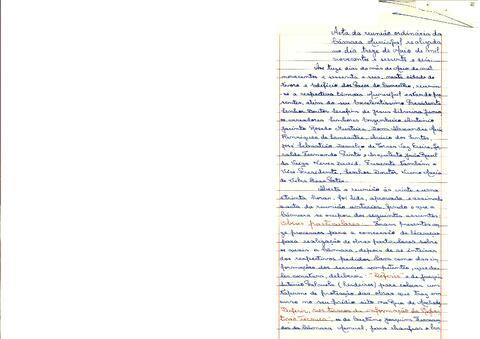 Acta da reunião ordinária da
Câmara Municipal realizada
no dia treze de Maio de mil
novecentos e sessenta e seis.
Aos treze dias do mês de Maio de mil
novecentos e sessenta e seis, nesta cidade de
Évora e edifício dos Paços do Concelho, reuniu-
-se a respectiva Câmara Municipal estando pre-
sentes, além do seu Excelentíssimo Presidente
Senhor Doutor Serafim de Jesus Silveira Júnior
os vereadores Senhores Engenheiro António
Jacinto Rosado
Henriques de Lencastre, dos Santos,
José Sebastião de Torres Vaz Freire,
Fernando Pinto e Arquitecto
da Veiga Neves David. Presente também o
Vice-Presidente, Senhor Doutor
Aberta a reunião às vinte e uma
e trinta horas, foi lida, aprovada e assinada
a acta da reunião anterior, findo o que a
Câmara se ocupou dos seguintes assuntos:
Obras particulares - Foram presentes on-
ze processos para a concessão de licenças
para realização de obras particulares sobre
os quais a Câmara, depois de se inteirar
dos respectivos pedidos bem como das in-
formações dos serviços competentes, que de-
les constam, deliberou: "Deferir" o de Joaquim
António para colocar um
tapume de protecção das obras que traz em
curso no seu prédio sito na Rua de
"Deferir, nos termos da informação da Repar-
tição Técnica", o de Joaquim
da Câmara Manuel, para